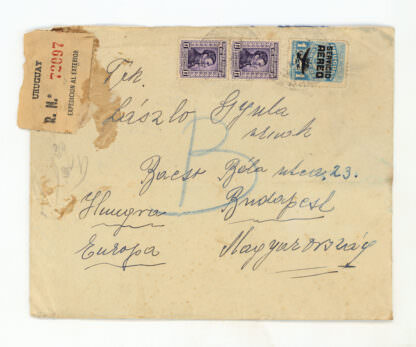 URUGUAY
R. N.º 72097
EXPEDICION AL EXTERIOR
SERVICIO
AEREO
László Gyula
urnak
Bacsó Béla utca. 23.
Hungria Budapest
Europa Magyarország
B